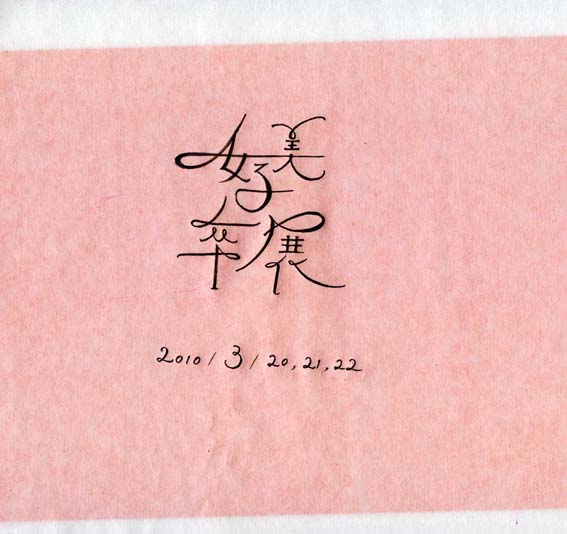 好美
卒展
2010/3/20,21,22